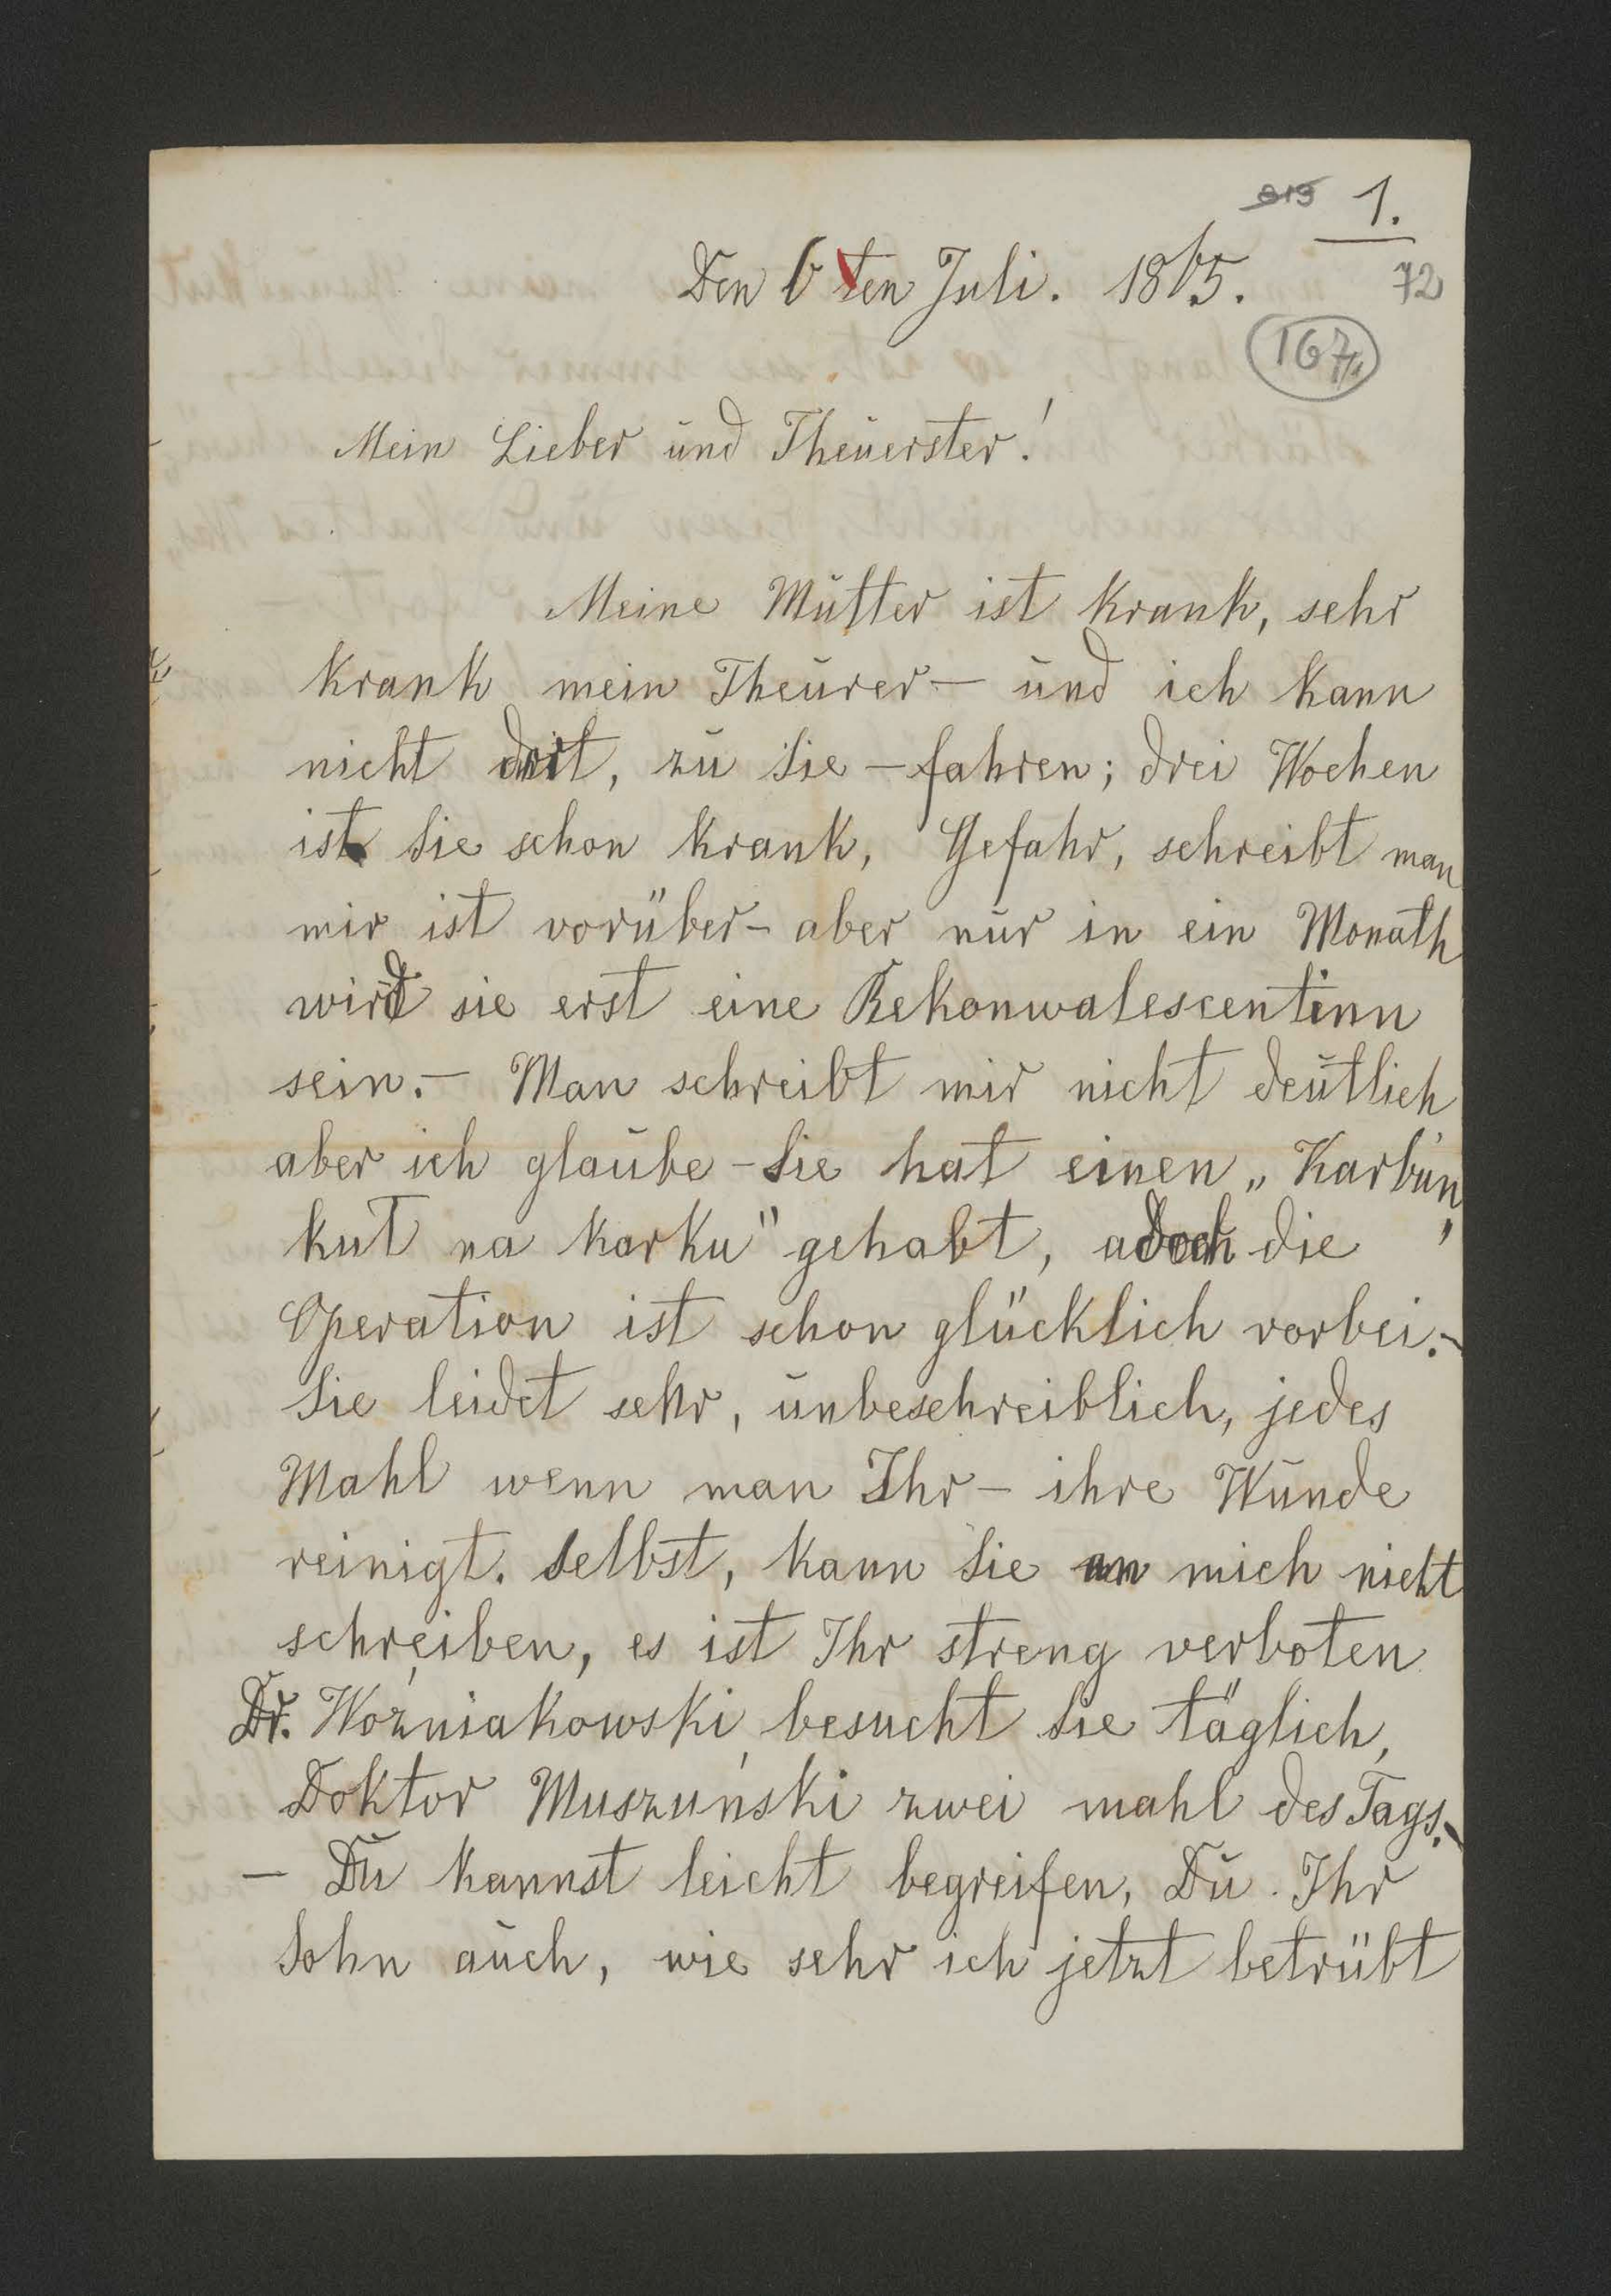 819 1.
Den 6ten Juli. 1865. 72
167/1
Mein Lieber und Theuerster!
Meine Mutter ist krank, sehr
krank mein Theurer – und ich kann
nicht dort, zu Sie – fahren; drei Wochen
ist Sie schon krank, Gefahr, schreibt man
mir ist vorüber – aber nur in ein Monath
wird sie erst eine Rekonwalescentinn
sein. – Man schreibt mir nicht deutlich
aber ich glaube – Sie hat einen „Karbun
kuł na karku" gehabt, doch die
Operation ist schon glücklich vorbei. –
Sie leidet sehr, unbeschreiblich, jedes
Mahl wenn man Ihr – ihre Wunde
reinigt. Selbst, kann Sie an mich nicht
schreiben, es ist Ihr streng verboten
Dr. Woźniakowski besucht Sie täglich,
Doktor Muszuński zwei mahl des Tags. –
– Du kannst leicht begreifen, Du Ihr
Sohn auch, wie sehr ich jetzt betrübt